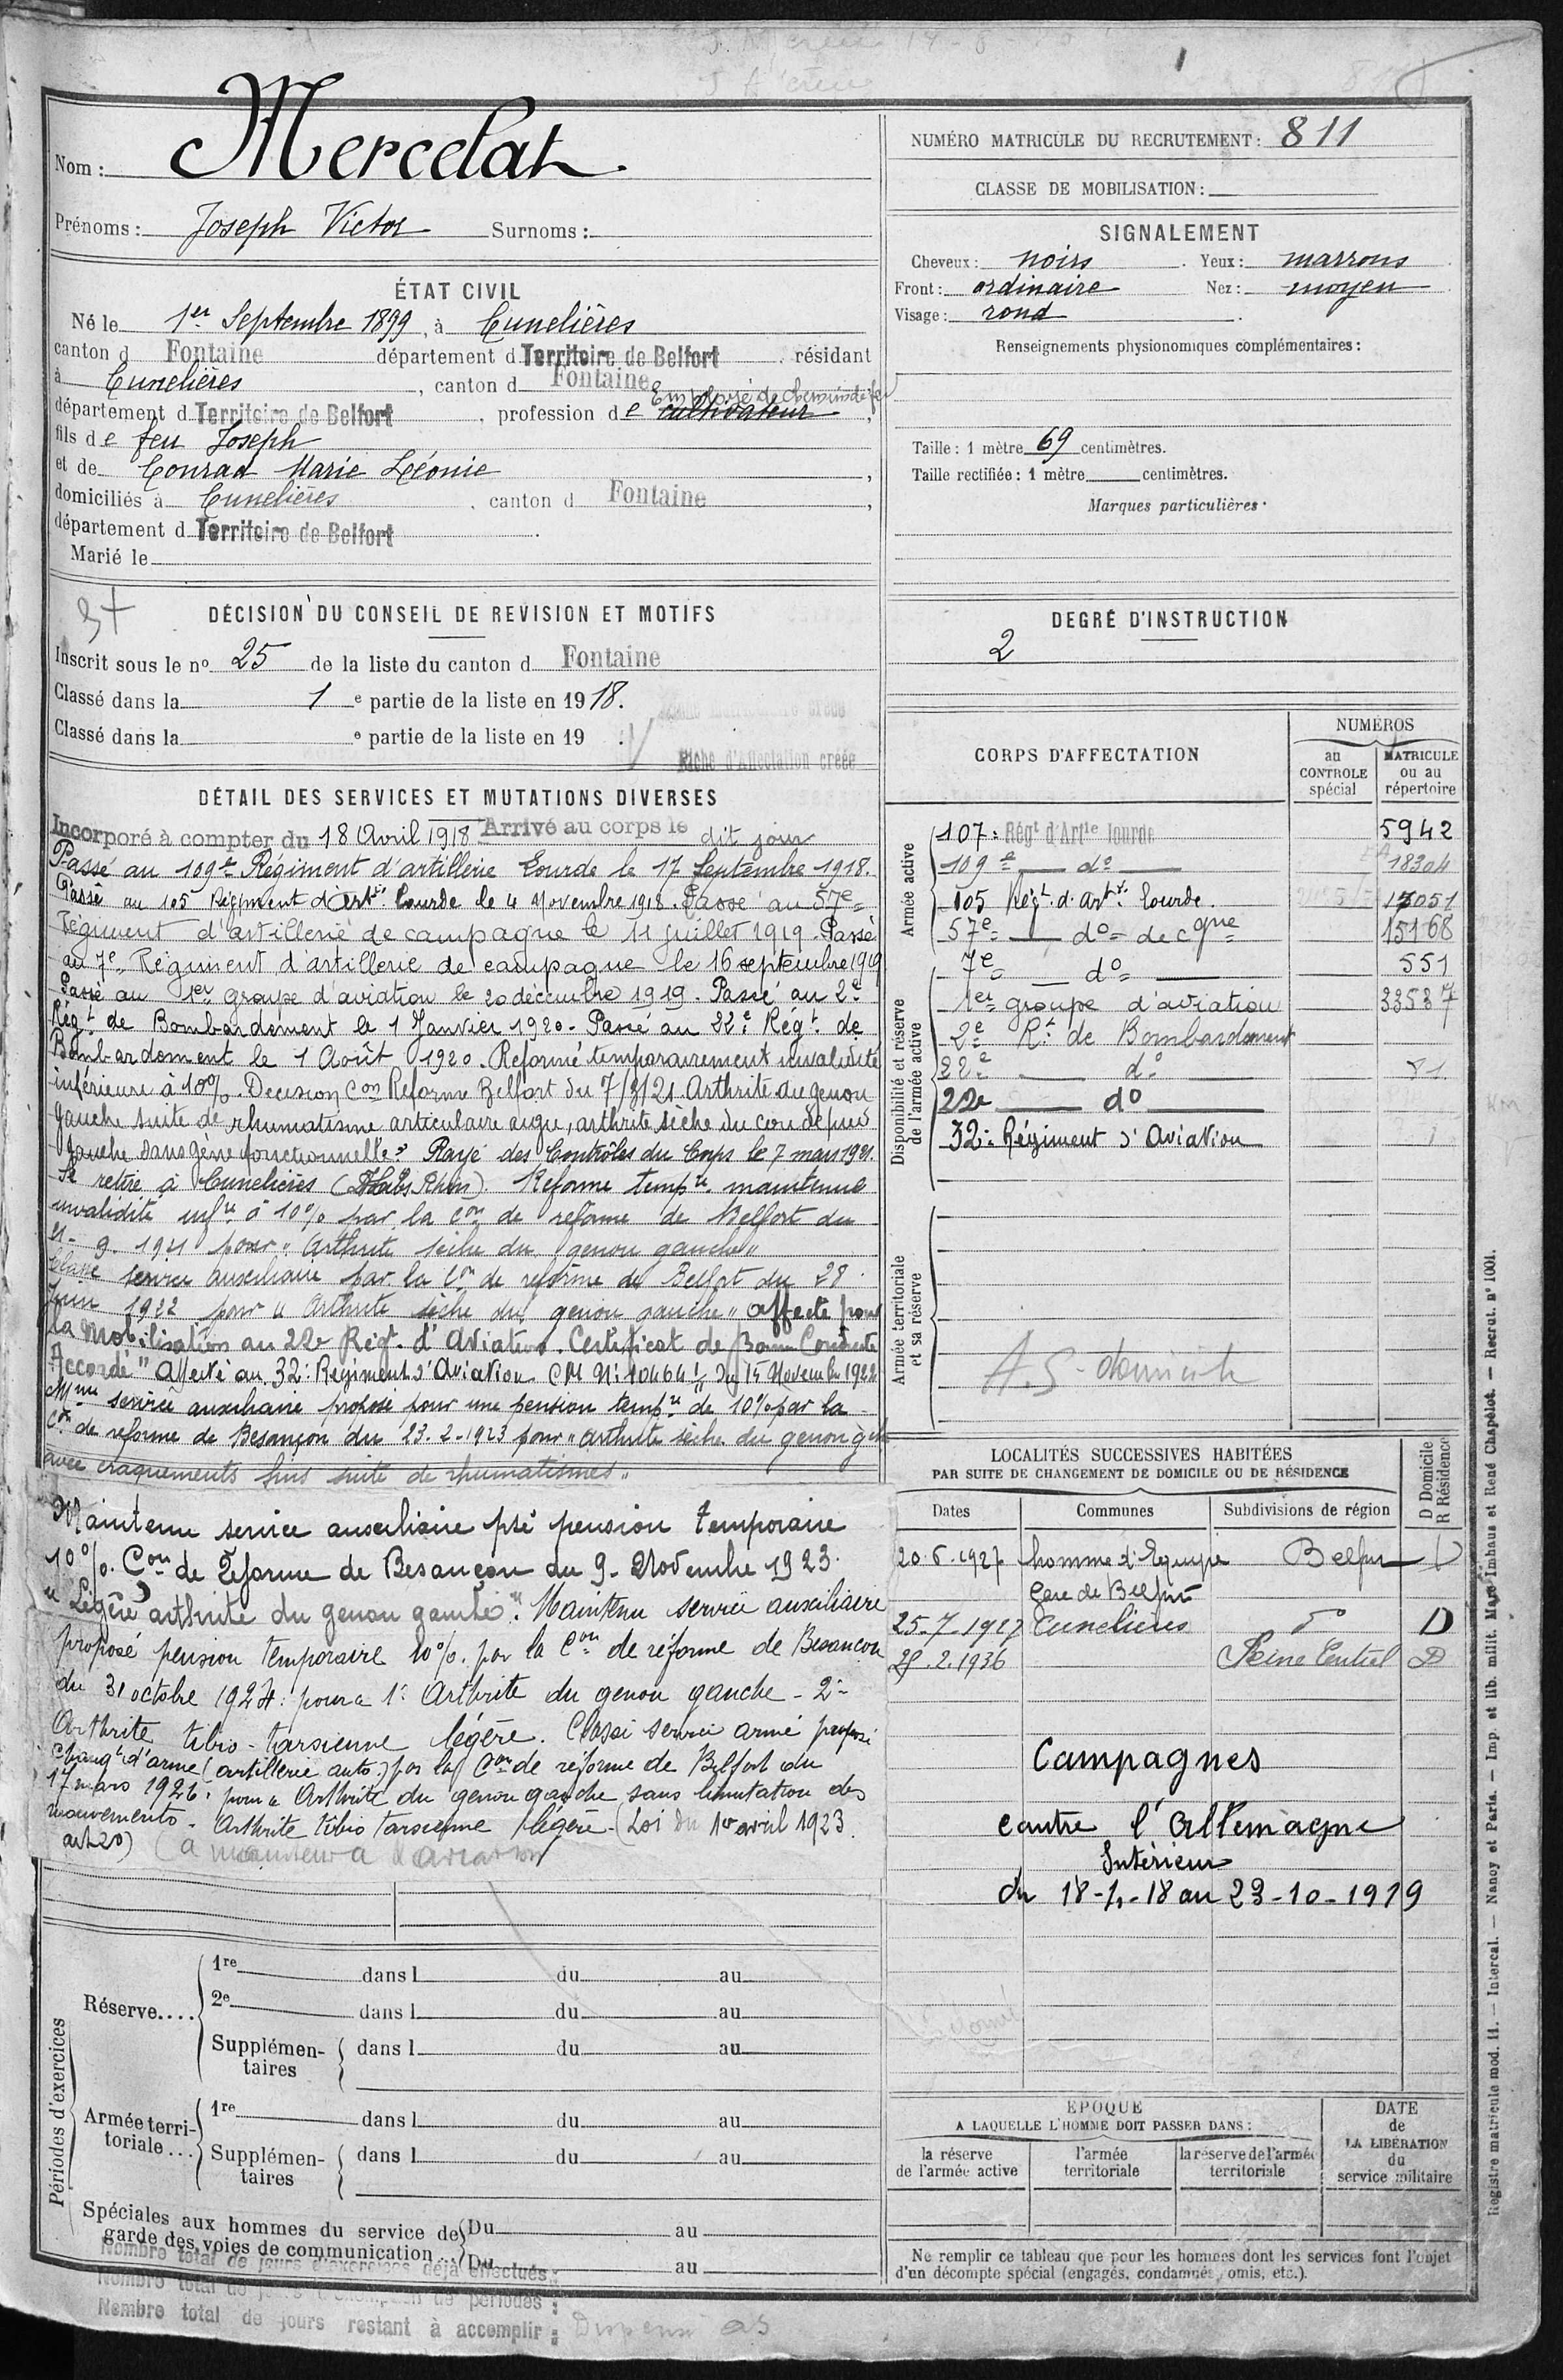 Nom : Mercelat
Prénoms : Joseph Victor Surnoms :
ÉTAT CIVIL
Né le 1er Septembre 1899, à Cunelières
canton d Fontaine département d Territoire de Belfort résidant
à Cunelières, canton d Fontaine
Employé de Chemins de fer
département d Territoire de Belfort, profession de cultivateur,
fils de feu Joseph
et de Conrad Marie Léonie,
domiciliés à Cunelieres, canton d Fontaine,
département d Territoire de Belfort.
Marié le
DÉCISION DU CONSEIL DE REVISION ET MOTIFS
Inscrit sous le no 25 de la liste du canton d Fontaine
Classé dans la 1 e partie de la liste en 1918.
Classé dans la e partie de la liste en 19 .
Fiche d'Affectation créée
DÉTAIL DES SERVICES ET MUTATIONS DIVERSES
Incorporé à compter du 18 Avril 1918 Arrivé au corps le dit jour
Passé au 109e Régiment d'artillerie Lourde le 17 Septembre 1918.
Passé au 105 Régiment d'Artie Lourde le 4 Novembre 1918. Passé au 57e
Régiment d'artillerie de campagne le 11 juillet 1919. Passé
au 7e Régiment d'artillerie de campagne le 16 septembre 1919
Passé au 1er groupe d'aviation le 20 décembre 1919. Passé au 2e
Régt de Bombardement le 1 Janvier 1920. Passé au 22e Régt de
Bombardement le 1 Août 1920. Réformé temporairement invalidité
inférieure à 10%. Décision Con Réforme Belfort du 7/3/21. Arthrite du genou
gauche suite de rhumatisme articulaire aigu, arthrite sèche du cou de pied
gauche sans gêne fonctionnelle. Rayé des Contrôles du Corps le 7 mars 1921.
Se retire à Cunelières (Rhin). Réforme tempre maintenue
invalidité infre à 10% par la Con de réforme de Belfort du
9. 1921 pour "Arthrite sèche du genou gauche"
Classé service auxiliaire par la Con de réforme de Belfort du 28
Juin 1922 pour "Arthrite sèche du genou gauche" affecté pour
la Mobilisation au 22e Régt d'Aviation. Certificat de Bonne Conduite
"Accordé" Affecté au 32e Régiment d'Aviation CM No 10464 du 15 Novembre 1922
Mnu service auxiliaire proposé pour une pension tempre de 10% par la
Con de réforme de Besançon du 23-2-1923 pour "arthrite sèche du genou gche
avec craquements fins suite de rhumatismes"
Maintenu service auxiliaire psé pension temporaire
10%. Con de Réforme de Besançon du 9 Novembre 1923.
"Légère arthrite du genou gauche". Maintenu service auxiliaire
proposé pension temporaire 10% par la Con de réforme de Besançon
du 31 octobre 1924: pour 1o Arthrite du genou gauche - 2o
Arthrite tibio-tarsienne légère. Classé service armé proposé
Changt d'arme (artillerie auto) par la Con de réforme de Belfort du
17 mars 1926: pour Arthrite du genou gauche sans limitation des
mouvements. Arthrite tibio tarsienne légère - (Loi du 1er avril 1923.
art 20)
Périodes d'exercices
Réserve....
1re dans l du au
2e dans l du au
Supplémentaires dans l du au
Armée territoriale...
1re dans l du au
Supplémentaires dans l du au
Spéciales aux hommes du service de garde des voies de communication...
Du au
Du au
Nombre total de jours d'exercices déjà effectués :
Nombre total de jours restant à accomplir :
NUMÉRO MATRICULE DU RECRUTEMENT : 811
CLASSE DE MOBILISATION :
SIGNALEMENT
Cheveux : noirs. Yeux : marrons
Front : ordinaire Nez : moyen
Visage : rond.
Renseignements physionomiques complémentaires :
Taille : 1 mètre 69 centimètres.
Taille rectifiée : 1 mètre centimètres.
Marques particulières.
DEGRÉ D'INSTRUCTION
2
CORPS D'AFFECTATION
NUMÉROS
au CONTROLE spécial
MATRICULE ou au répertoire
Armée active
107e Régt d'Artie lourde 5942
109e do 18304
105 Régt d'Artie lourde. 17051
57e do de cgne 15168
Disponibilité et réserve de l'armée active
7e do 551
1er groupe d'aviation 33587
2e Rt de Bombardement
22e do 81
22e do
32e Régiment d'Aviation
Armée territoriale et sa réserve
A.S. domicile
LOCALITÉS SUCCESSIVES HABITÉES
PAR SUITE DE CHANGEMENT DE DOMICILE OU DE RÉSIDENCE
Dates Communes Subdivisions de région D Domicile R Résidence
20.6.1927 homme d'Equipe Belfort D
Gare de Belfort
25-7-1927 Cunelières do D
28.2.1936 Seine Central D
Campagnes
contre l'Allemagne
Intérieur
du 18-4-18 au 23-10-1919
ÉPOQUE
A LAQUELLE L'HOMME DOIT PASSER DANS :
la réserve de l'armée active
l'armée territoriale
la réserve de l'armée territoriale
DATE de LA LIBÉRATION du service militaire
Ne remplir ce tableau que pour les hommes dont les services font l'objet
d'un décompte spécial (engagés, condamnés, omis, etc.).
Registre matricule mod. 11. — Intercal. — Nancy et Paris. — Imp. et lib. milit. Marc Imhaus et René Chapelot. — Recrut. no 1001.